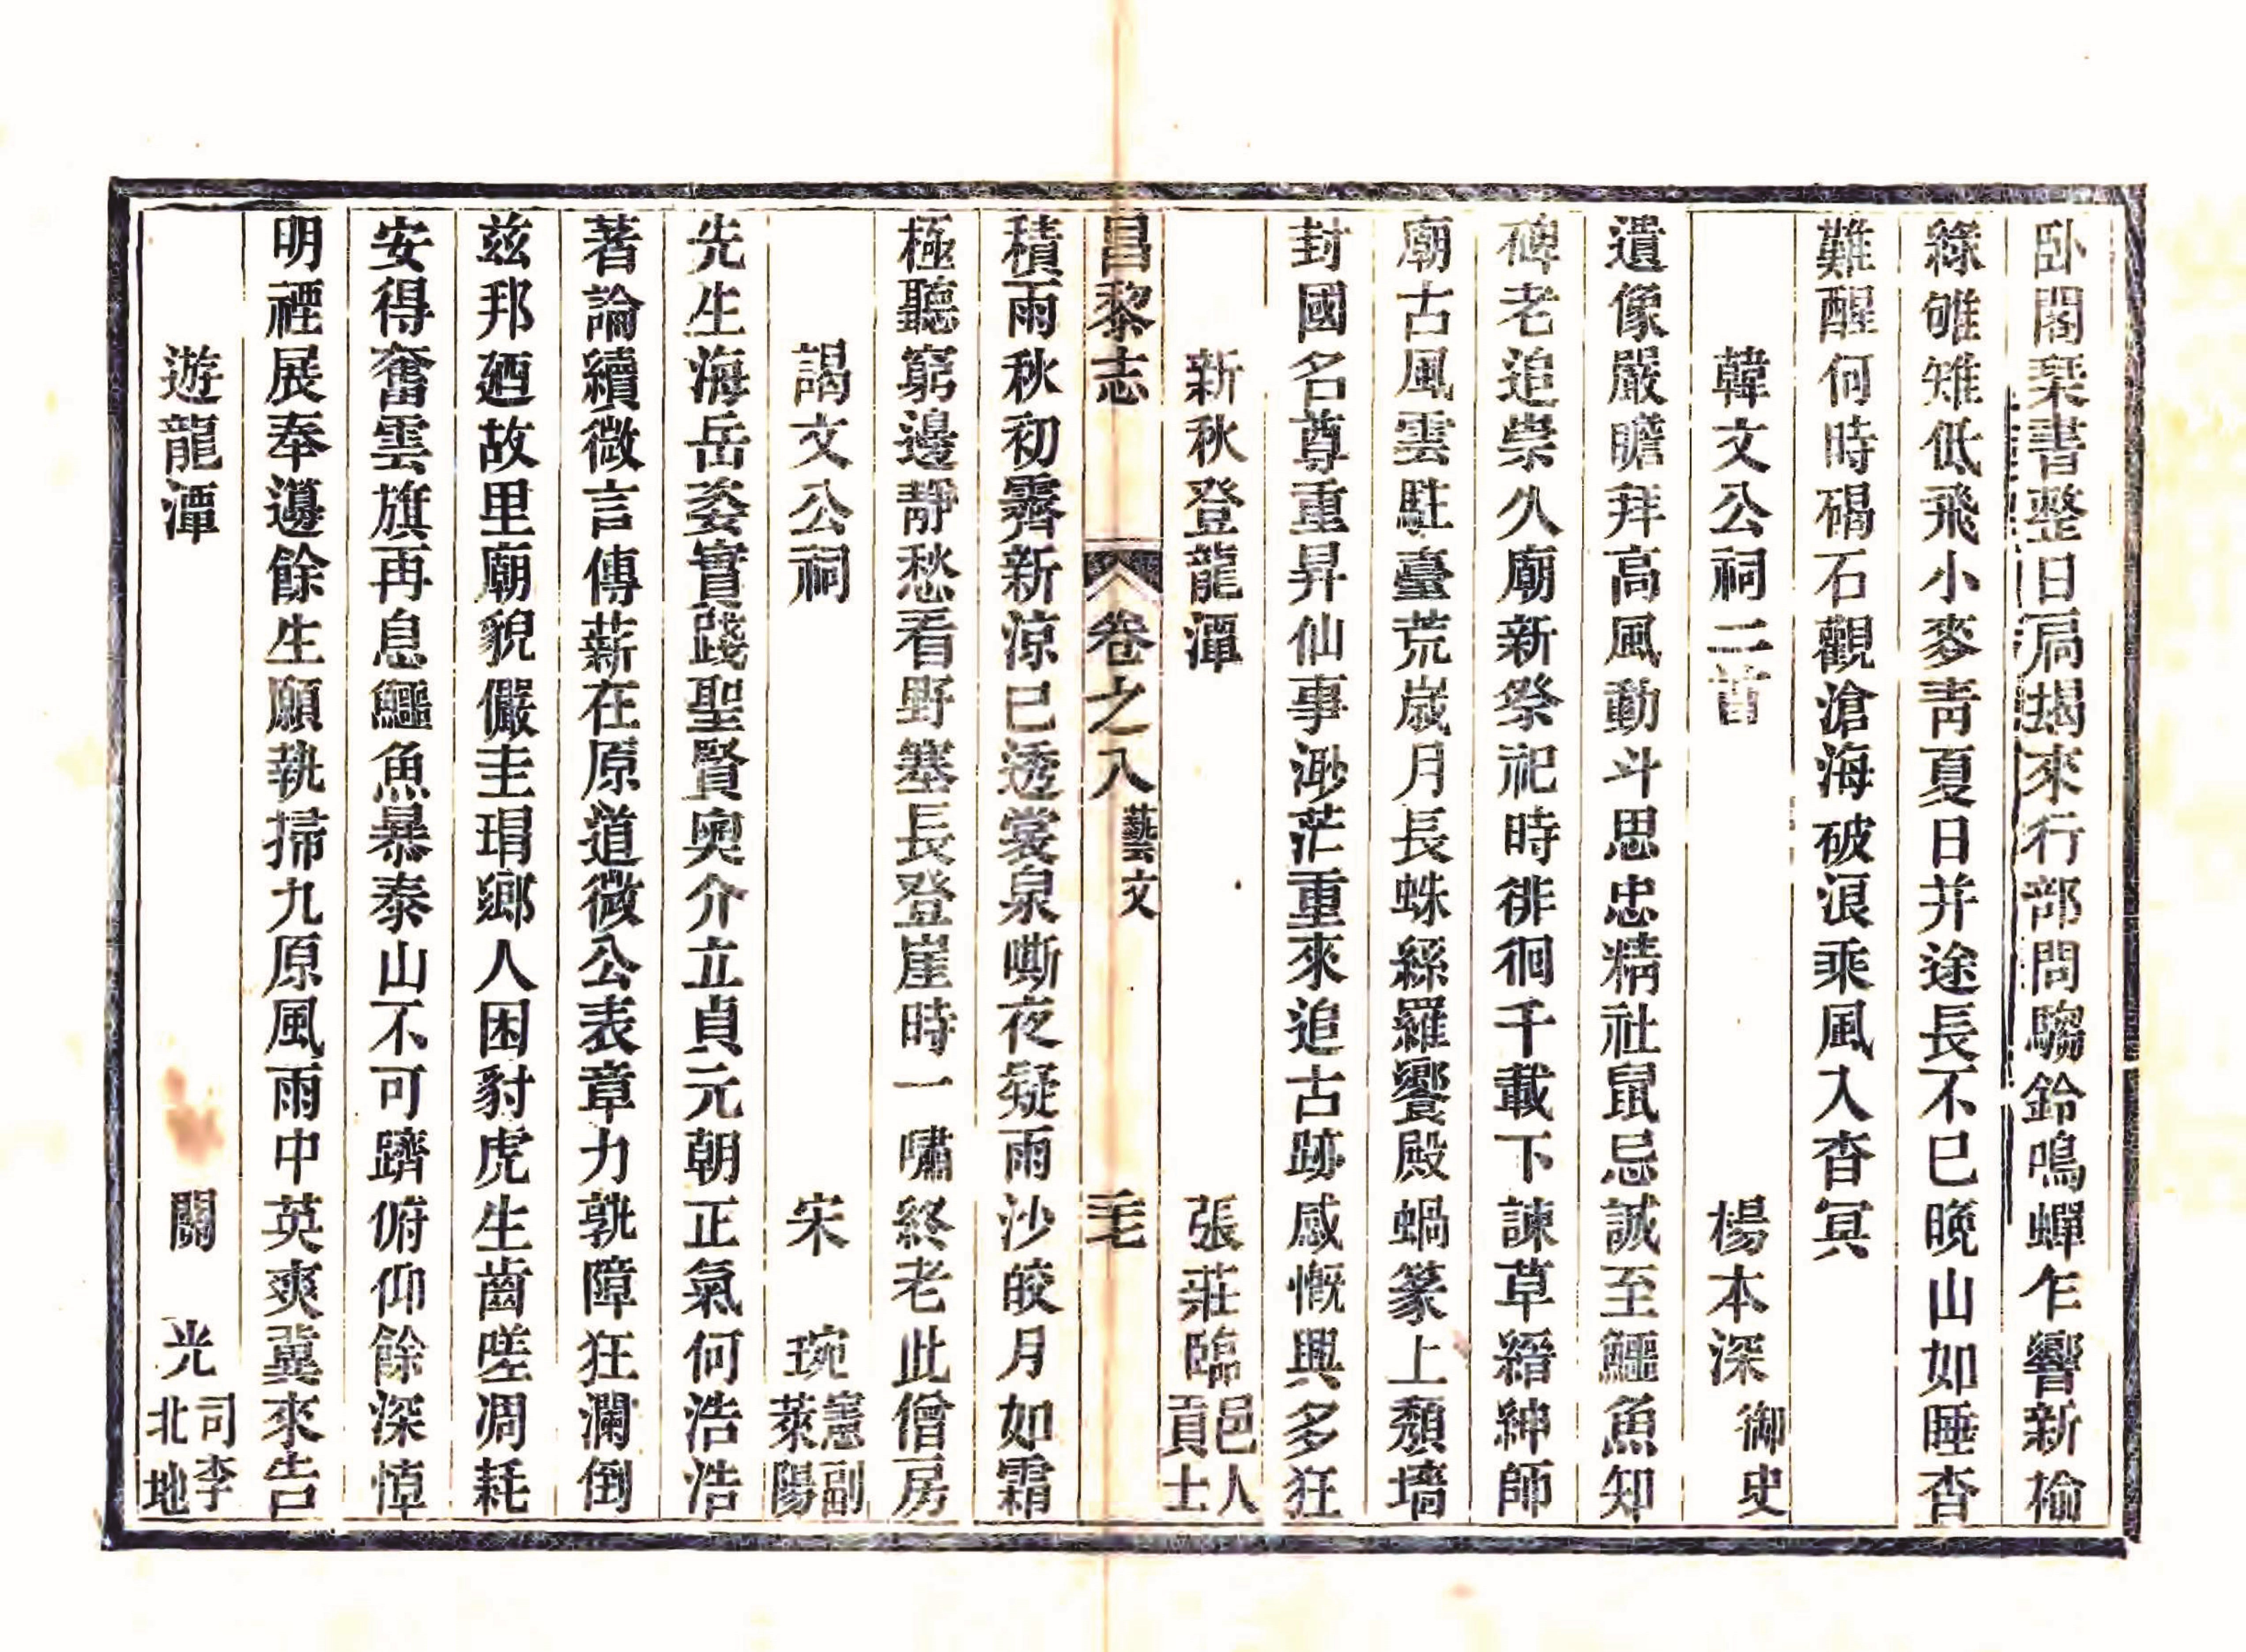 卧閣琹書整日扃朅來行部問騶鈴鳴蟬乍響新榆
綠雊雉低飛小麥靑夏日并途長不已晚山如睡杳
難醒何時碣石觀滄海破浪乘風入杳冥
韓文公祠二首 楊本深 御史
遺像嚴瞻拜高風動斗思忠精社鼠忌誠至鱷魚知
碑老追崇久廟新祭祀時徘徊千載下諫草縉紳師
廟古風雲駐臺荒歲月長蛛絲羅饗殿蝸篆上頹墻
封國名尊重昇仙事渺茫重來追古跡感慨興多狂
新秋登龍潭 張莊臨 邑人貢士
昌黎志 卷之八 藝文 毛
積雨秋初霽新涼已透裳泉嘶夜疑雨沙皎月如霜
極聽窮邊靜愁看野塞長登崖時一嘯終老此僧房
謁文公祠 宋琬 憲副萊陽
先生海岳姿實踐聖賢奧介立貞元朝正氣何浩浩
著論續微言傳薪在原道微公表章力孰障狂瀾倒
兹邦廼故里廟貌儼圭瑁鄉人困豺虎生齒嗟凋耗
安得奮雲旗再息鱷魚暴泰山不可躋俯仰餘深悼
明禋展奉邊餘生願執掃九原風雨中英爽冀來告
遊龍潭 關光 司李北地